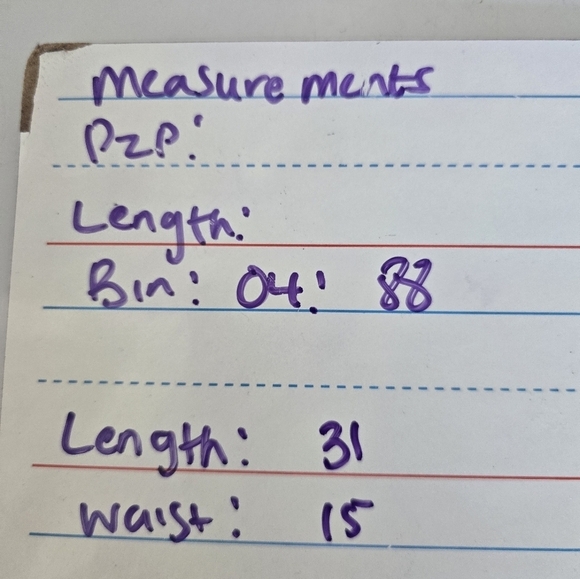 Measurements
P2P:
Length:
Bin: 04: 88
Length: 31
Waist: 15